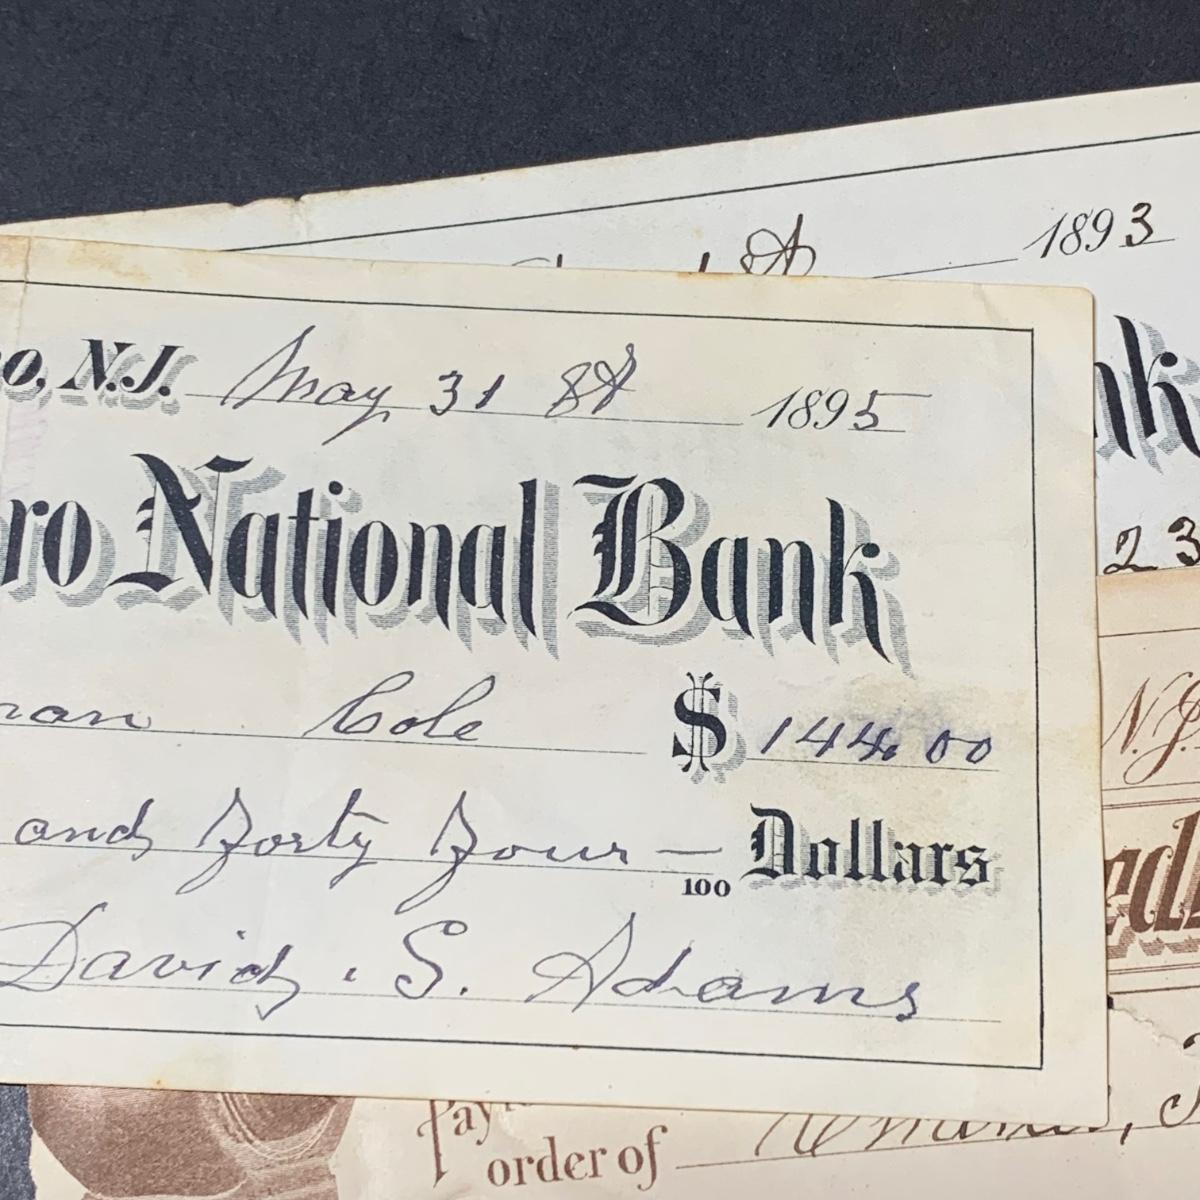 1893
o, N.J. May 31 st 1895
ro National Bank
nk
23
ran Cole $ 144.00
N.J.
and Forty Four — Dollars
100
ed
David. S. Adams
Pay
order of